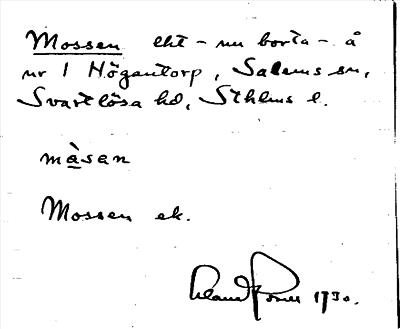 Mossen eht - nu borta - å
nr 1 Högantorp, Salems sn,
Svartlösa hd, Sthlms l.
màsan
Mossen ek.
1930.